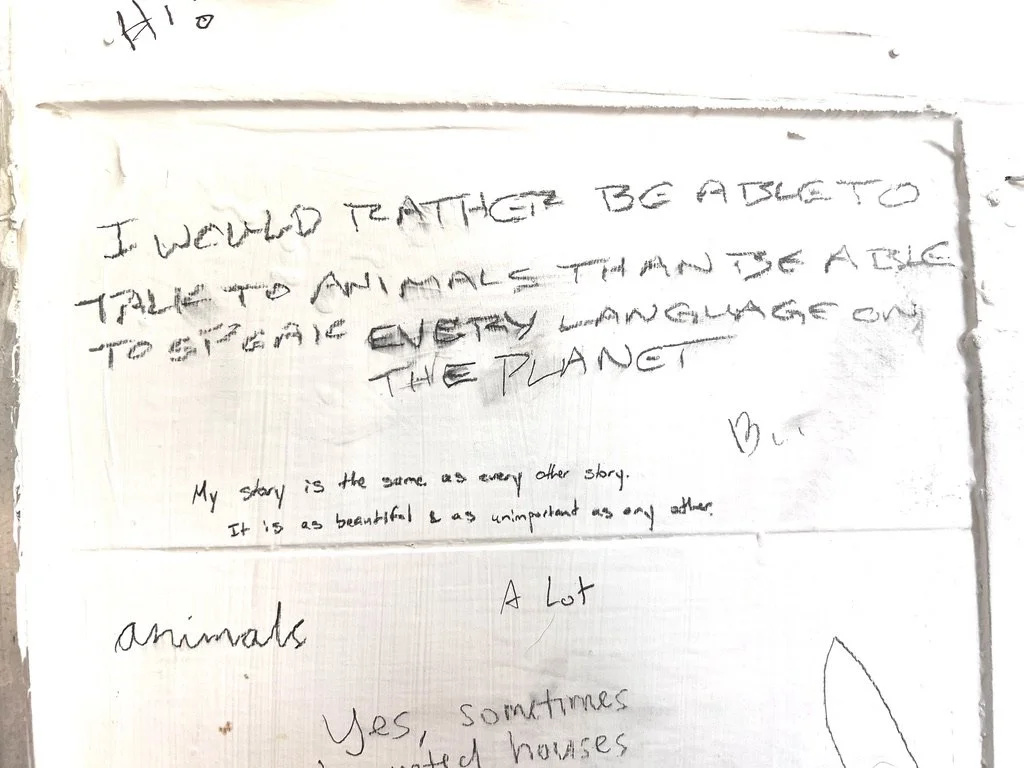 Hi!
I WOULD RATHER BE ABLE TO
TALK TO ANIMALS THAN BE ABLE
TO SPEAK EVERY LANGUAGE ON
THE PLANET
My story is the same as every other story.
It is as beautiful & as unimportant as any other.
A Lot
animals
Yes, sometimes
houses